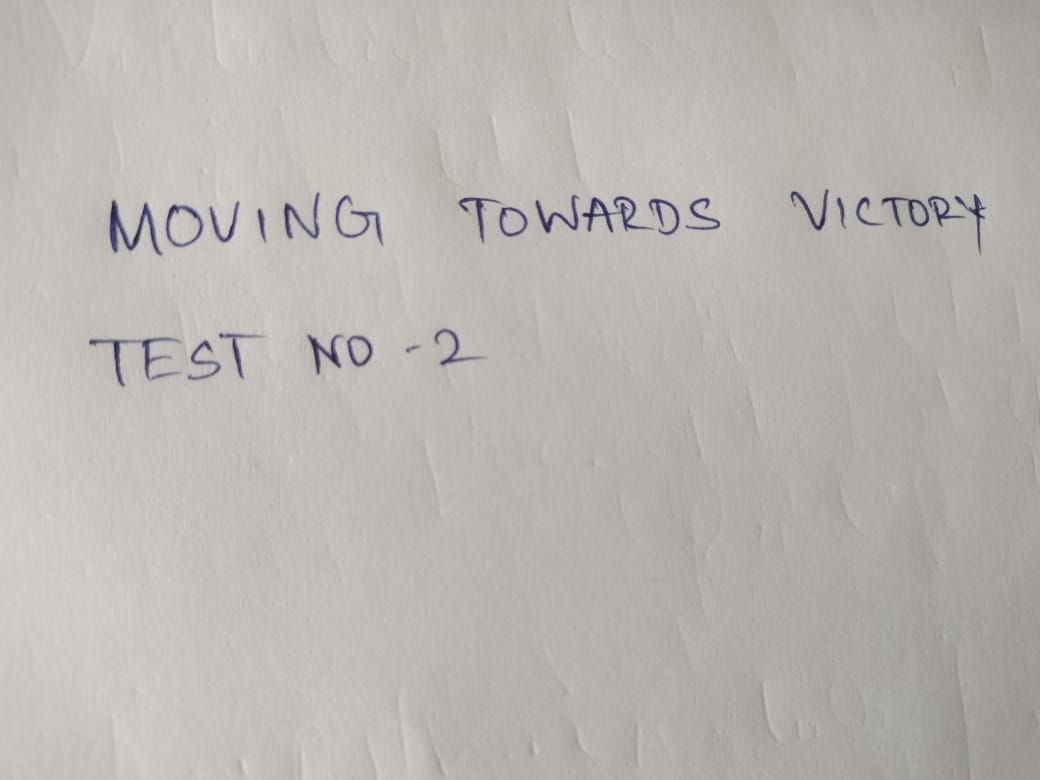 MOVING TOWARDS VICTORY
TEST NO -2